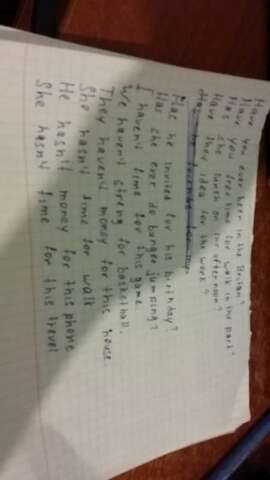 Have you ever been in the Britan?
Have you free time for walk in the park?
Has she lunch on the afternoon?
Have they idea for the work?
Has he invited for his birthday?
Has she ever do bungee jumping?
I haven't time for this game.
We haven't strong for basketball.
They haven't money for this house
She hasn't time for walk
He hasn't money for this phone
She hasn't time for this travel